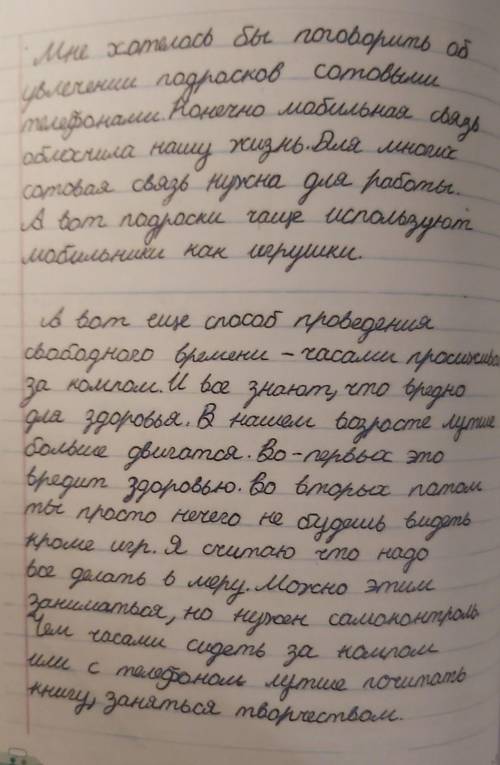 Мне хотелось бы поговорить об
увлечении подросков сотовыми
телефонами. Конечно мобильная связь
облохчила нашу жизнь. Для многих
сотовая связь нужна для работы.
А вот подроски чаще используют
мобильники как игрушки.
А вот еще способ проведения
свободного времени - часами просижива
за компом. И все знают, что вредно
для здоровья. В нашем возрасте лутше
больше двигатся. Во-первых это
вредит здоровью. Во вторых потом
ты просто нечего не будешь видеть
кроме игр. Я считаю что надо
все делать в меру. Можно этим
заниматься, но нужен самоконтроль
Чем часами сидеть за компом
или с телефоном лутше почитать
книгу, заняться творчеством.